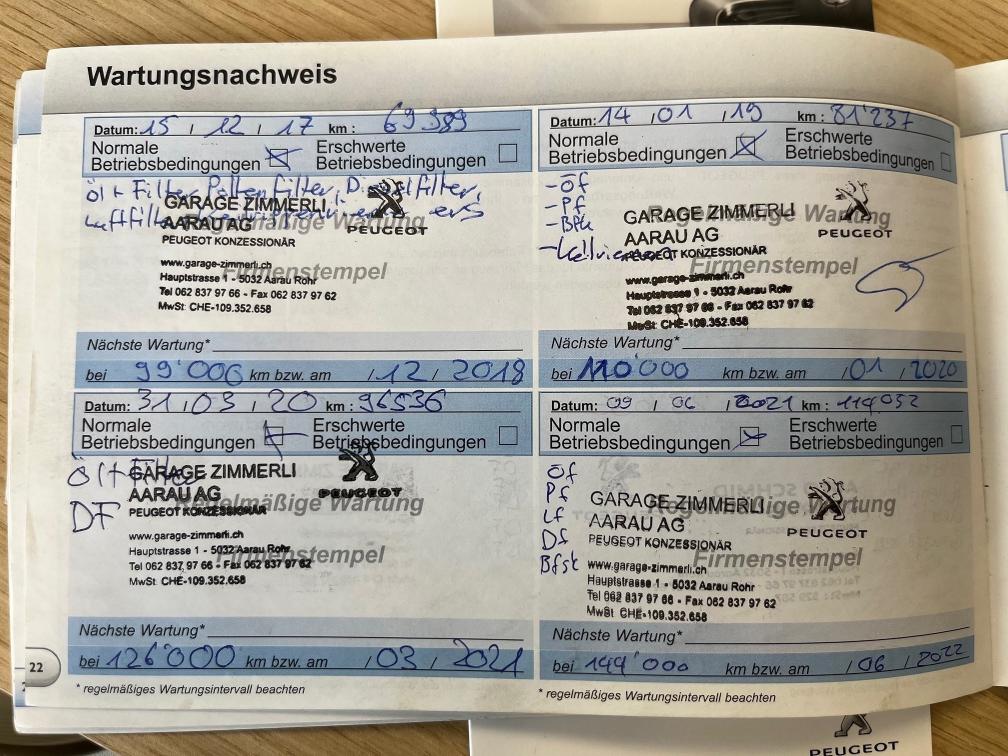 Wartungsnachweis
Datum: 15 / 12 / 17 km : 69.989
Normale Betriebsbedingungen
Erschwerte Betriebsbedingungen
Öl + Filter, Pollenfilter, Dieselfilter,
Luftfilter
GARAGE ZIMMERLI
AARAU AG
PEUGEOT KONZESSIONÄR
PEUGEOT
Regelmäßige Wartung
www.garage-zimmerli.ch
Firmenstempel
Hauptstrasse 1 - 5032 Aarau Rohr
Tel 062 837 97 66 - Fax 062 837 97 62
MwSt: CHE-109.352.658
Nächste Wartung*
bei 99'000 km bzw. am / 12 / 2018
Datum: 14 / 01 / 19 km : 81'237
Normale Betriebsbedingungen
Erschwerte Betriebsbedingungen
- Öf
- Pf
- Bfk
GARAGE ZIMMERLI
AARAU AG
PEUGEOT KONZESSIONÄR
PEUGEOT
Regelmäßige Wartung
www.garage-zimmerli.ch
Firmenstempel
Hauptstrasse 1 - 5032 Aarau Rohr
Tel 062 837 97 66 - Fax 062 837 97 62
MwSt: CHE-109.352.658
Nächste Wartung*
bei 110'000 km bzw. am / 01 / 2020
Datum: 31 / 03 / 20 km : 96536
Normale Betriebsbedingungen
Erschwerte Betriebsbedingungen
Öl + Filter
DF
GARAGE ZIMMERLI
AARAU AG
PEUGEOT KONZESSIONÄR
PEUGEOT
Regelmäßige Wartung
www.garage-zimmerli.ch
Firmenstempel
Hauptstrasse 1 - 5032 Aarau Rohr
Tel 062 837 97 66 - Fax 062 837 97 62
MwSt: CHE-109.352.658
Nächste Wartung*
bei 126'000 km bzw. am / 03 / 2021
Datum: 09 / 06 / 2021 km : 114,052
Normale Betriebsbedingungen
Erschwerte Betriebsbedingungen
Öf
Pf
Lf
Df
Bfsk
GARAGE ZIMMERLI
AARAU AG
PEUGEOT KONZESSIONÄR
PEUGEOT
Regelmäßige Wartung
www.garage-zimmerli.ch
Firmenstempel
Hauptstrasse 1 - 5032 Aarau Rohr
Tel 062 837 97 66 - Fax 062 837 97 62
MwSt: CHE-109.352.658
Nächste Wartung*
bei 144'000 km bzw. am / 06 / 2022
22
* regelmäßiges Wartungsintervall beachten
* regelmäßiges Wartungsintervall beachten
PEUGEOT